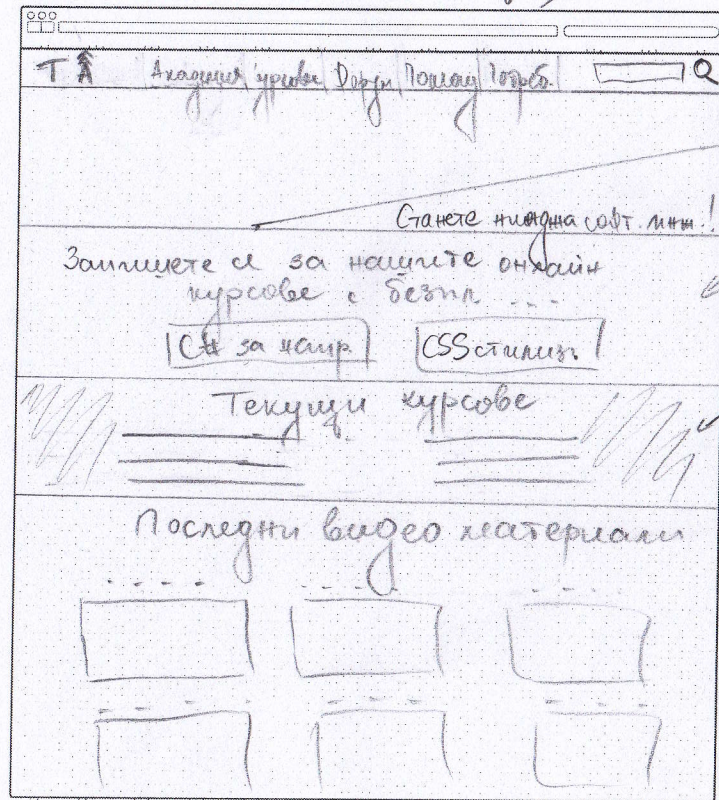 TA Академия Курсове Форум Помощ
Станете нинджа софт. инж.!
Запишете се за нашите онлайн
курсове с безпл ...
C# за напр. CSS стилиз.
Текущи курсове
Последни видео материали